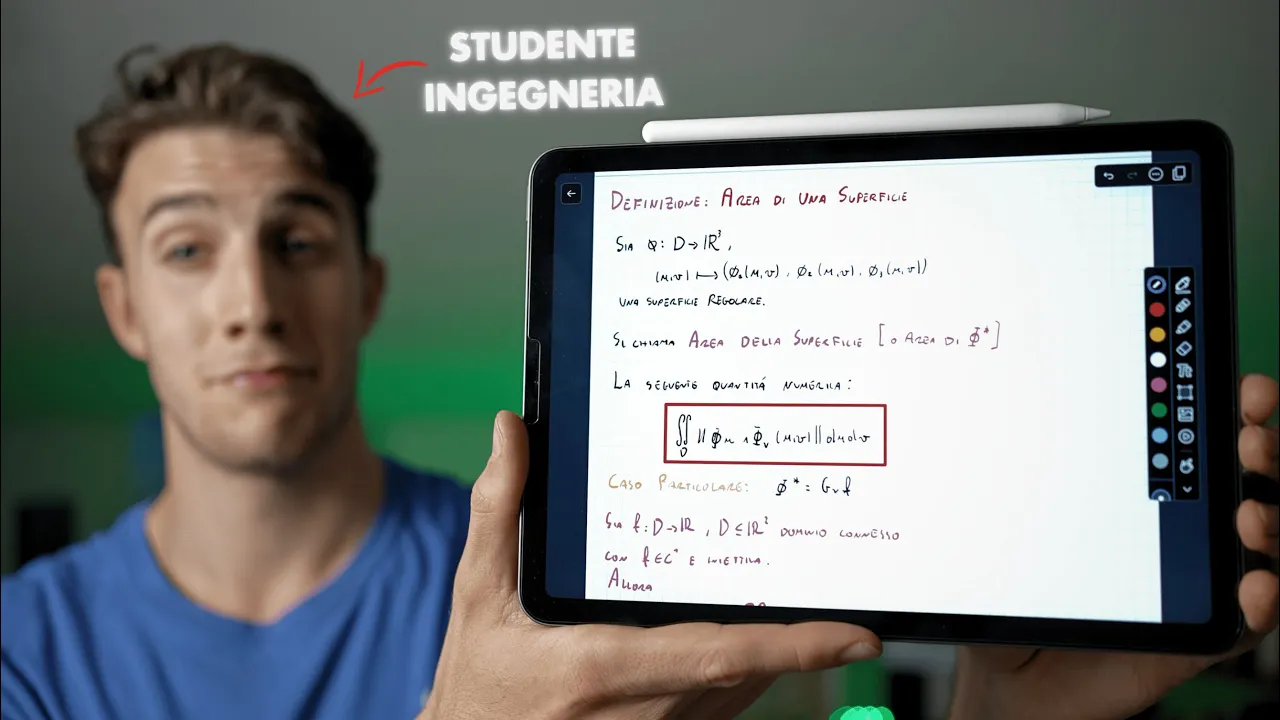 STUDENTE
INGEGNERIA
DEFINIZIONE: AREA DI UNA SUPERFICIE
SIA φ: D → ℝ³,
(u,v) ⟼ (φ₁(u,v), φ₂(u,v), φ₃(u,v))
UNA SUPERFICIE REGOLARE.
SI CHIAMA AREA DELLA SUPERFICIE [O AREA DI Φ*]
LA SEGUENTE QUANTITÁ NUMERICA:
∬_D ‖Φu ∧ Φv (u,v)‖ du dv
CASO PARTICOLARE: Φ* = Gr f
SIA f: D → ℝ, D ⊆ ℝ² DOMINIO CONNESSO
CON f ∈ C¹ E INIETTIVA.
ALLORA